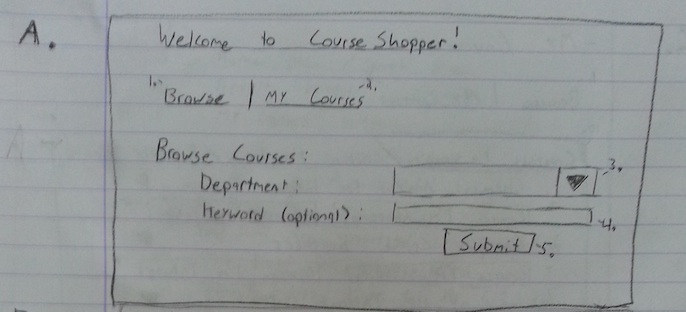 A.
Welcome to Course Shopper!
1. Browse | My Courses 2.
Browse Courses:
Department: 3.
Keyword (optional): 4.
Submit 5.